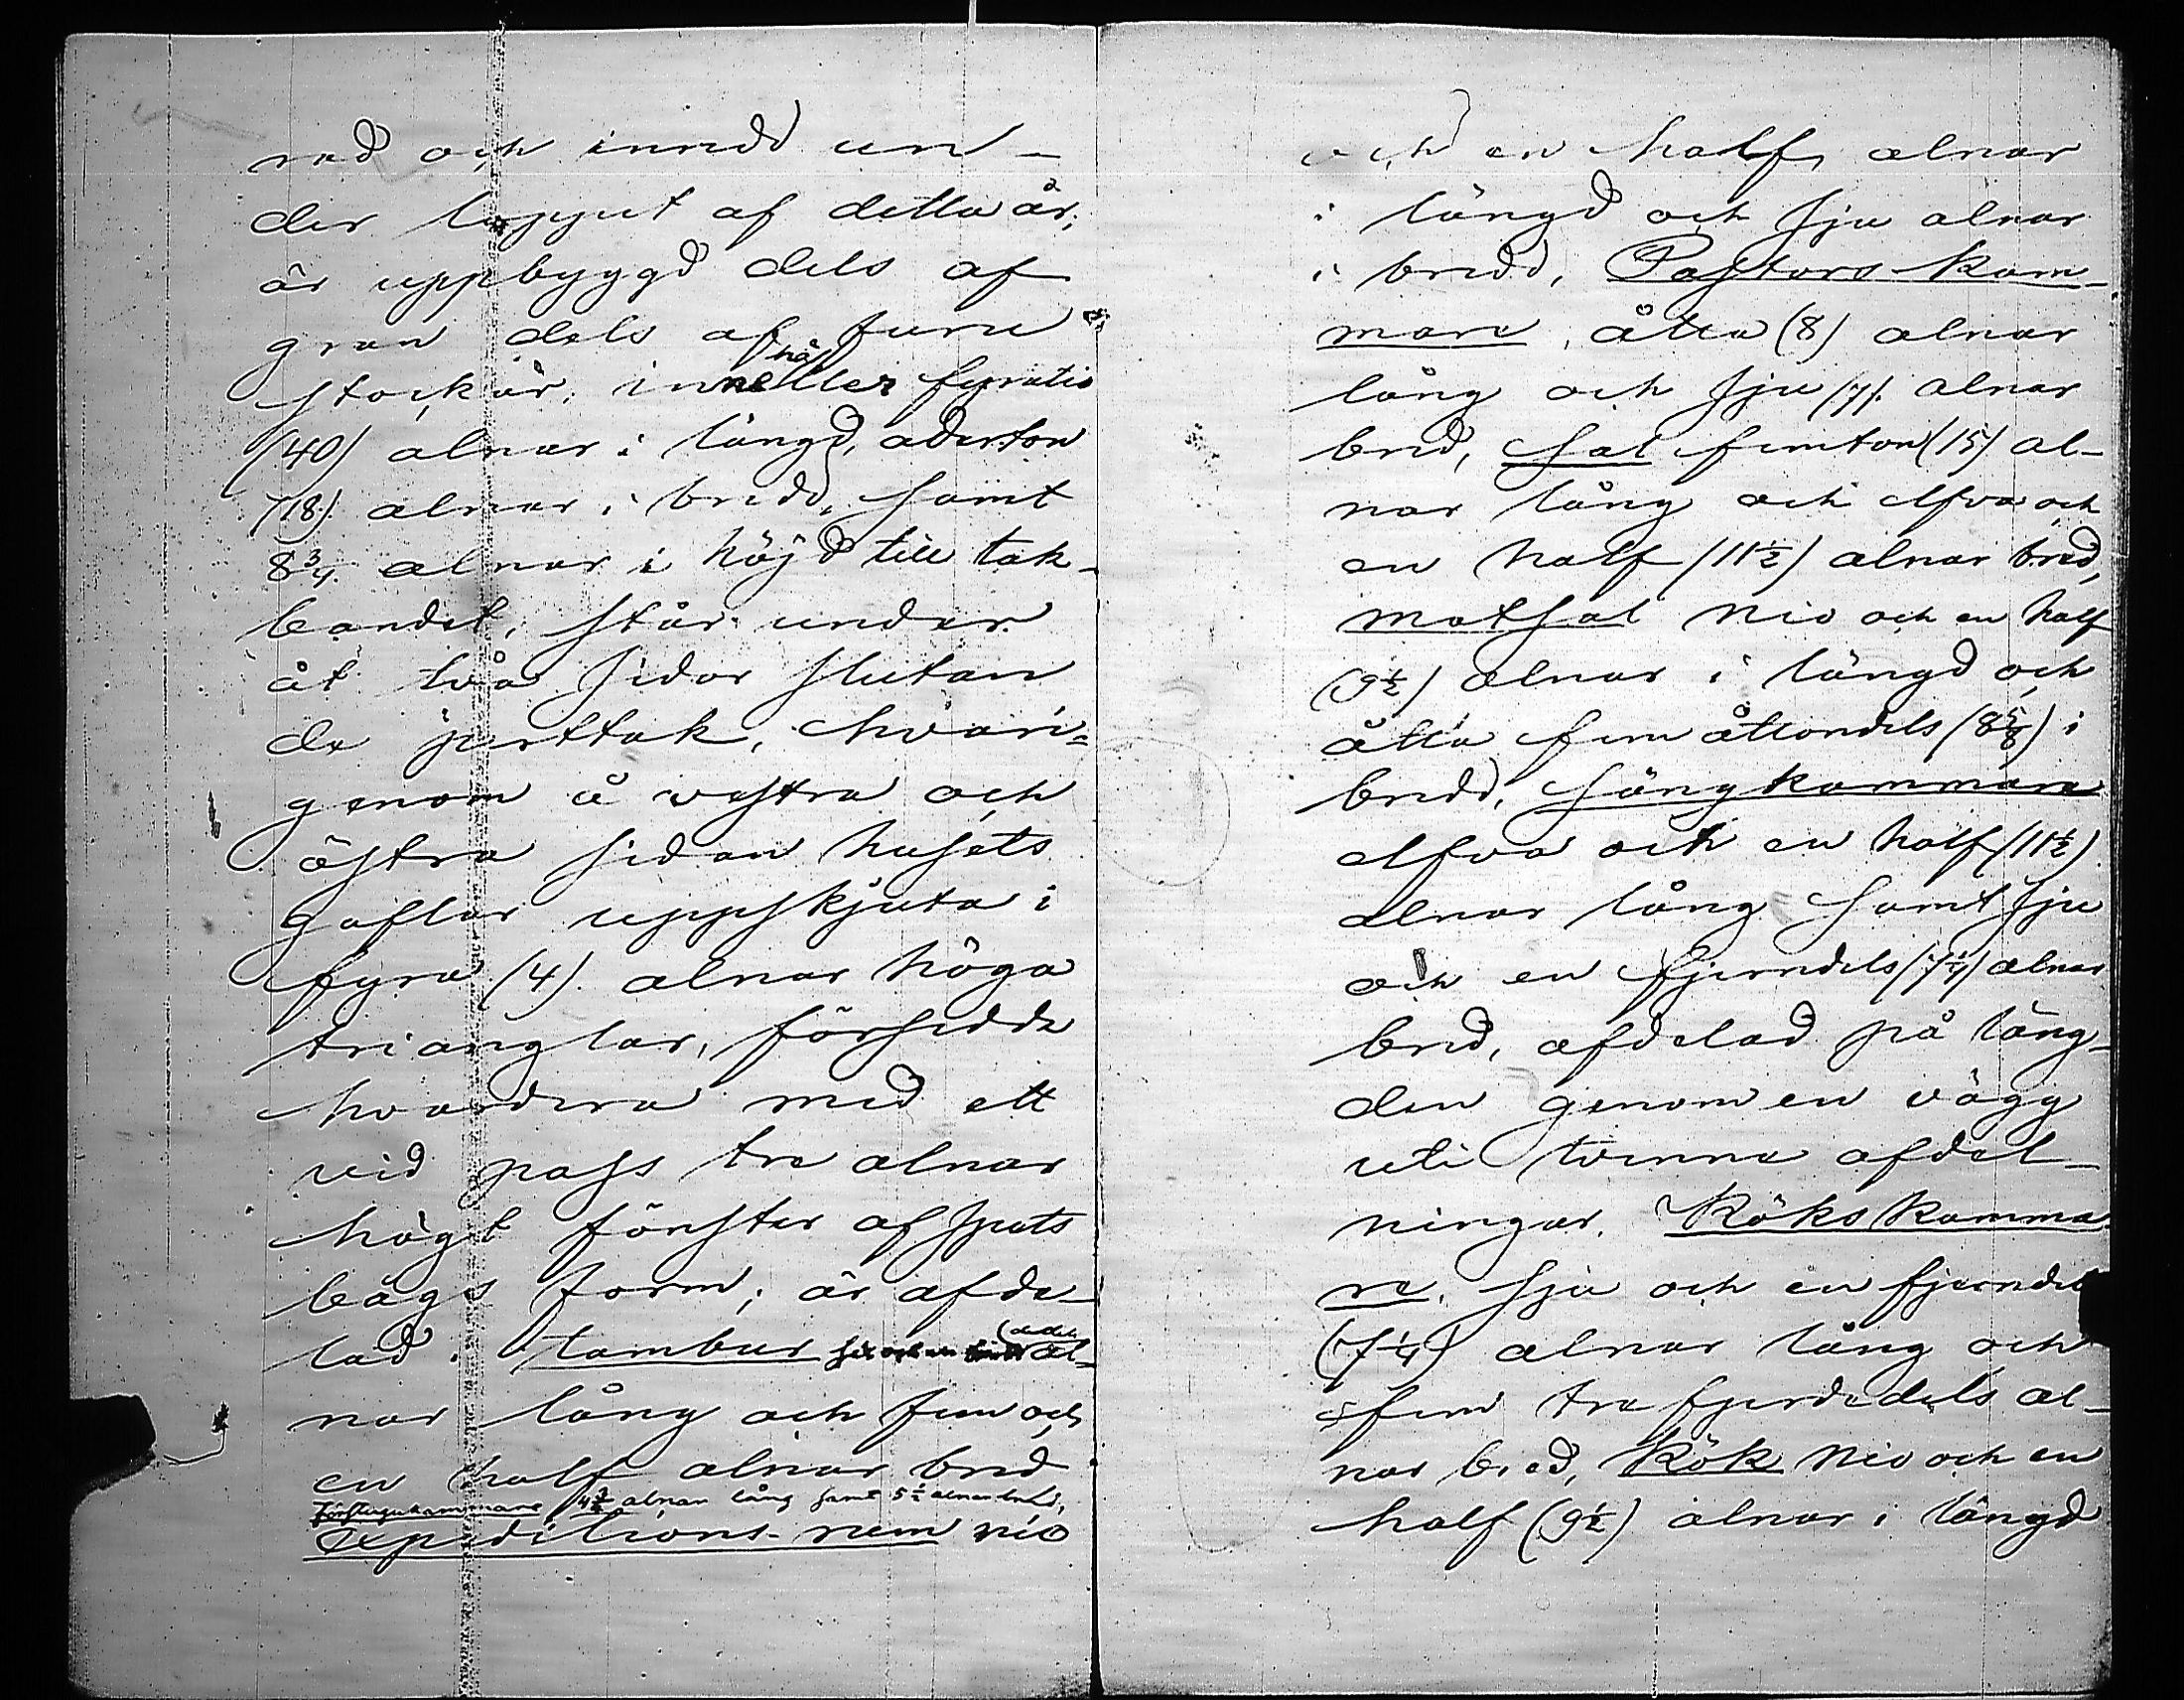 rad och inredd un-
der loppet af detta år,
är uppbyggd dels af
gran dels af furu
stockar, innehåller fyratio
(40) alnar i längd, aderton
(18) alnar i bredd, samt
8 3/4 alnar i höjd till tak-
bandet, står under
åt två sidor slutan
de perttak, hvari=
genom å vestra och
östra sidan husets
gaflar uppskjuta i
fyra (4) alnar höga
trianglar, försedda
hvardera med ett
vid pass tre alnar
högt fönster af spets
bågs form; är afde-
lad i tambur sex och en al-
nar lång och fem och
en half alnar bred
Förstugukammare 4 3/4 alnar lång samt 5 1/2 alnar bred,
Expeditions-rum nio
och en half alnar
i längd och sju alnar
i bredd, Pastors kam-
mare, åtta (8) alnar
lång och sju (7) alnar
bred, Sal femton (15) al-
nar lång och elfva och
en half (11 1/2) alnar bred,
matsal nio och en half
(9 1/2) alnar i längd och
åtta fem åttondels (8 5/8) i
bredd, Sängkammare
elfva och en half (11 1/2)
alnar lång samt sju
och en fjerndels (7 1/4) alnar
bred, afdelad på läng-
den genom en vägg
uti tvenne afdel-
ningar. Köks Kamma
re, sju och en fjerndel
(7 1/4) alnar lång och
fem tre fjerdedels al-
nar bred, Kök nio och en
half (9 1/2) alnar i längd